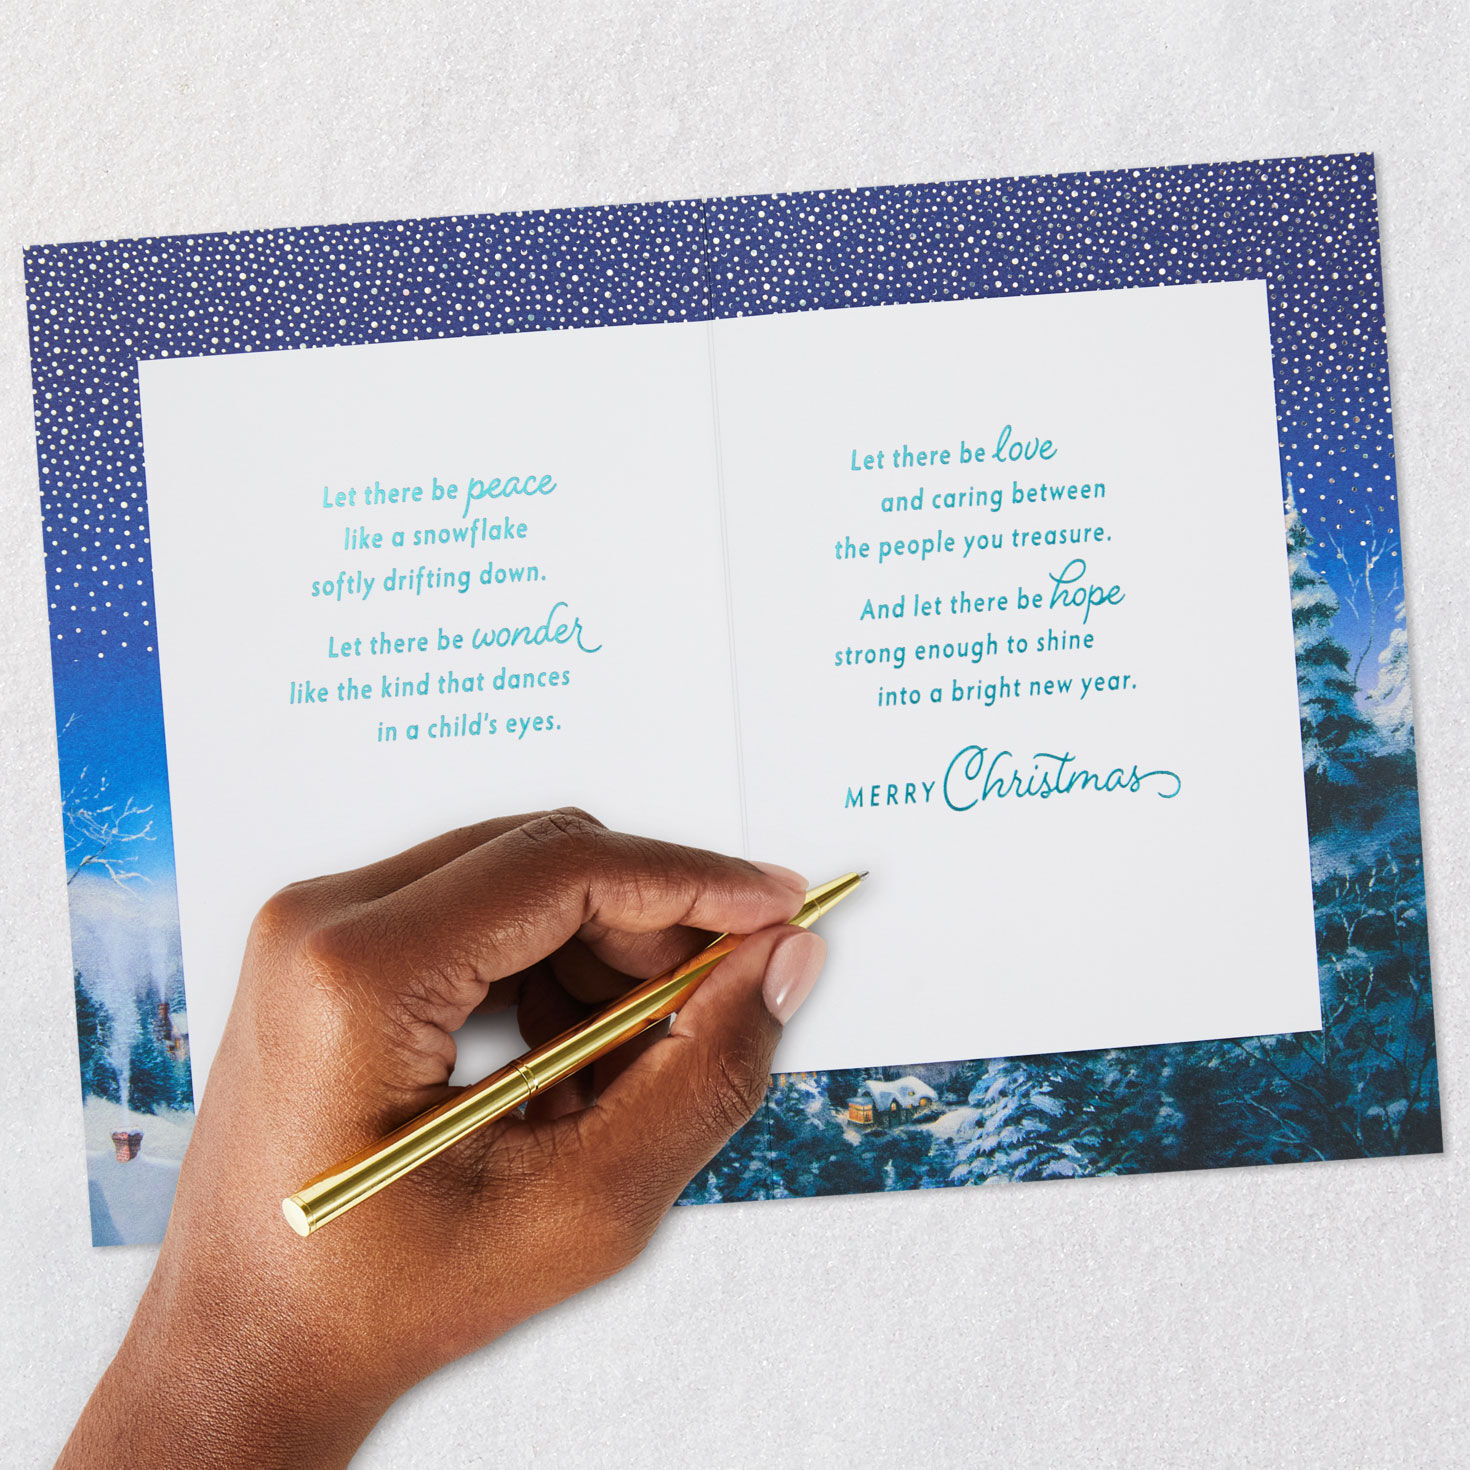 Let there be peace
like a snowflake
softly drifting down.
Let there be wonder
like the kind that dances
in a child's eyes.
Let there be love
and caring between
the people you treasure.
And let there be hope
strong enough to shine
into a bright new year.
MERRY Christmas